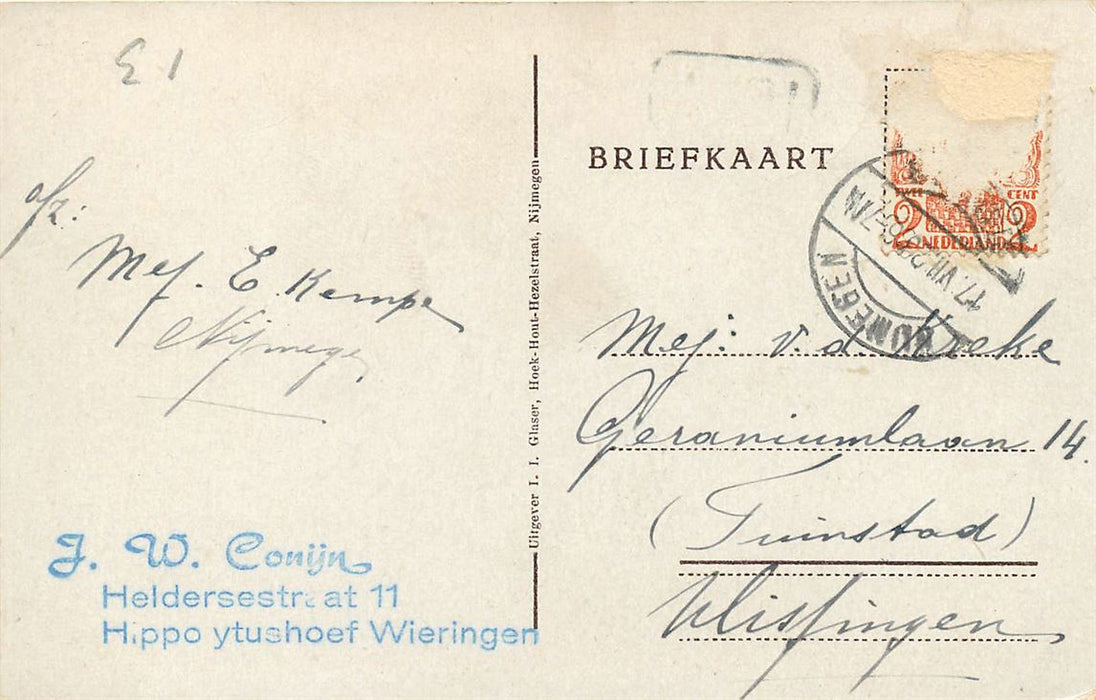 £ 1
a/z:
Mej. E. Kempe
Nijmegen
J. W. Conijn
Heldersestraat 11
Hippo ytushoef Wieringen
Uitgever I. I. Glaser, Hoek-Hout-Hezelstraat, Nijmegen.
BRIEFKAART
CENT
2 2
NEDERLAND
NIJMEGEN
17 VII
Mej: v. d. Kreke
Geraniumlaan 14.
(Tuinstad)
Vlissingen